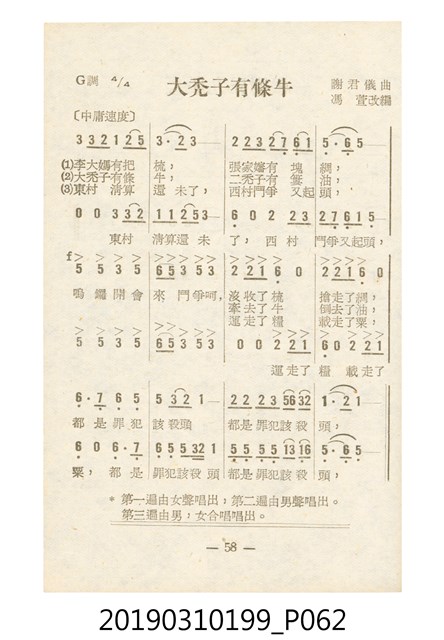 G調 4/4 大禿子有條牛 謝君儀曲
馮萱改編
〔中庸速度〕
3 3 2 1 2 5 3·2 3 2 2 3 2 7 6 1 5·6 5
(1)李大嬸有把梳, 張家嬸有塊綢,
(2)大禿子有條牛, 二禿子有簍油,
(3)東村清算還未了, 西村鬥爭又起頭,
0 0 3 3 2 1 1 2 5 3 6 0 2 2 3 2 7 6 1 5
東村清算還未了, 西村鬥爭又起頭,
f 5 5 3 5 6 5 3 5 3 2 2 1 6 0 2 2 1 6 0
鳴鑼開會來鬥爭呵, 沒收了梳 搶走了綢,
牽去了牛 倒去了油,
運走了糧 載走了粟,
5 5 3 5 6 5 3 5 3 0 0 2 2 1 0 0 2 2 1
運走了糧 載走了
6·7 6 5 5 3 2 1 2 2 2 3 5 6 3 2 1·2 1
都是罪犯該殺頭 都是罪犯該殺頭,
6 0 6·7 6 5 5 3 2 1 5 5 5 5 1 3 1 6 5·6 5
粟, 都是罪犯該殺頭 都是罪犯該殺頭,
* 第一遍由女聲唱出,第二遍由男聲唱出。
第三遍由男,女合唱唱出。
— 58 —
20190310199_P062